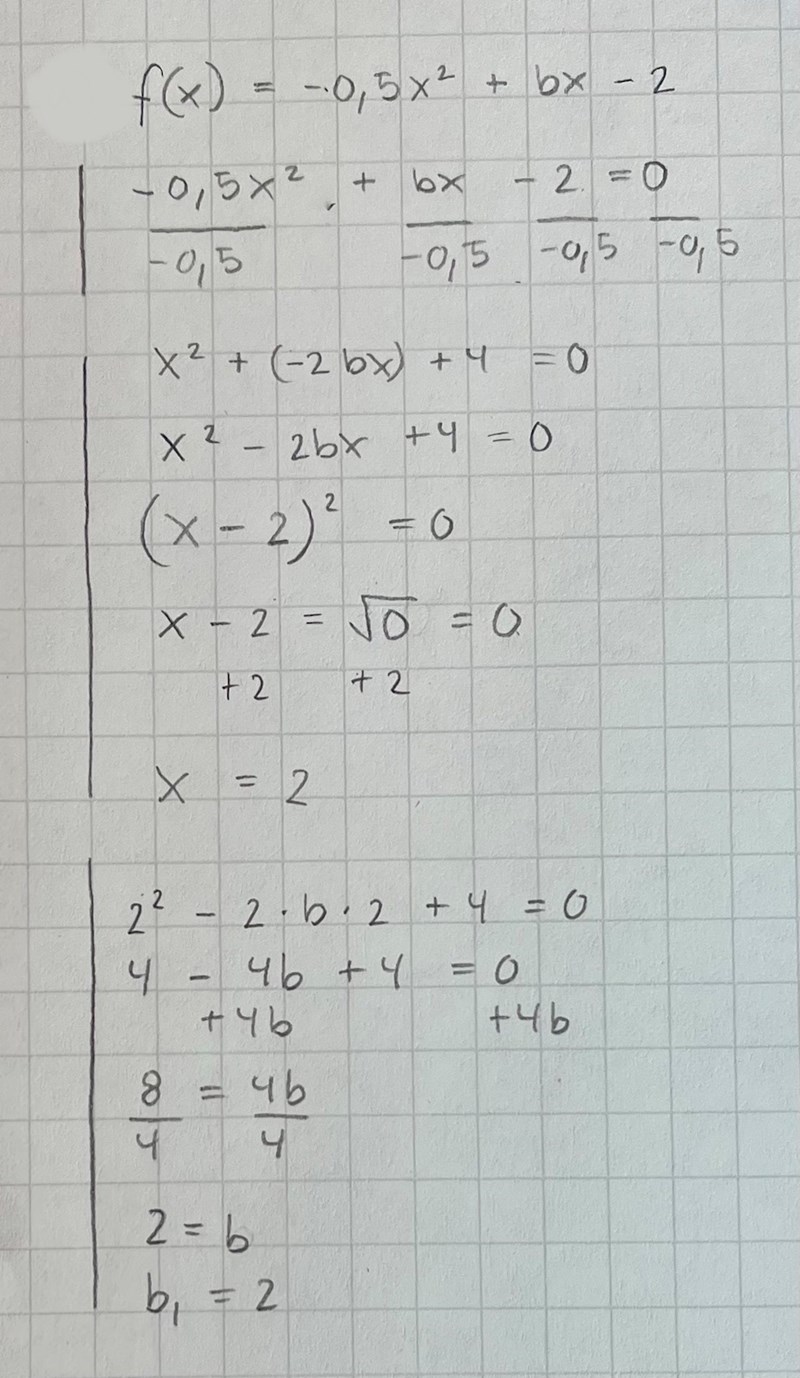 f(x) = -0,5x² + bx - 2
-0,5x²/-0,5 + bx/-0,5 - 2/-0,5 = 0/-0,5
x² + (-2bx) + 4 = 0
x² - 2bx + 4 = 0
(x - 2)² = 0
x - 2 = √0 = 0
+2 +2
x = 2
2² - 2·b·2 + 4 = 0
4 - 4b + 4 = 0
+4b +4b
8/4 = 4b/4
2 = b
b₁ = 2